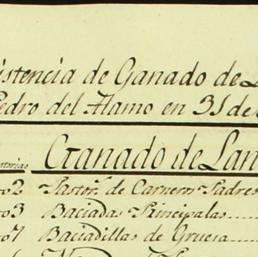 istencia de Ganado de L
Pedro del Alamo en 31 de
Ganado de Lan
to2 Pastors. de Carneros Padres
to3 Baciadas Principales
to7 Baciadillas de Gruesa